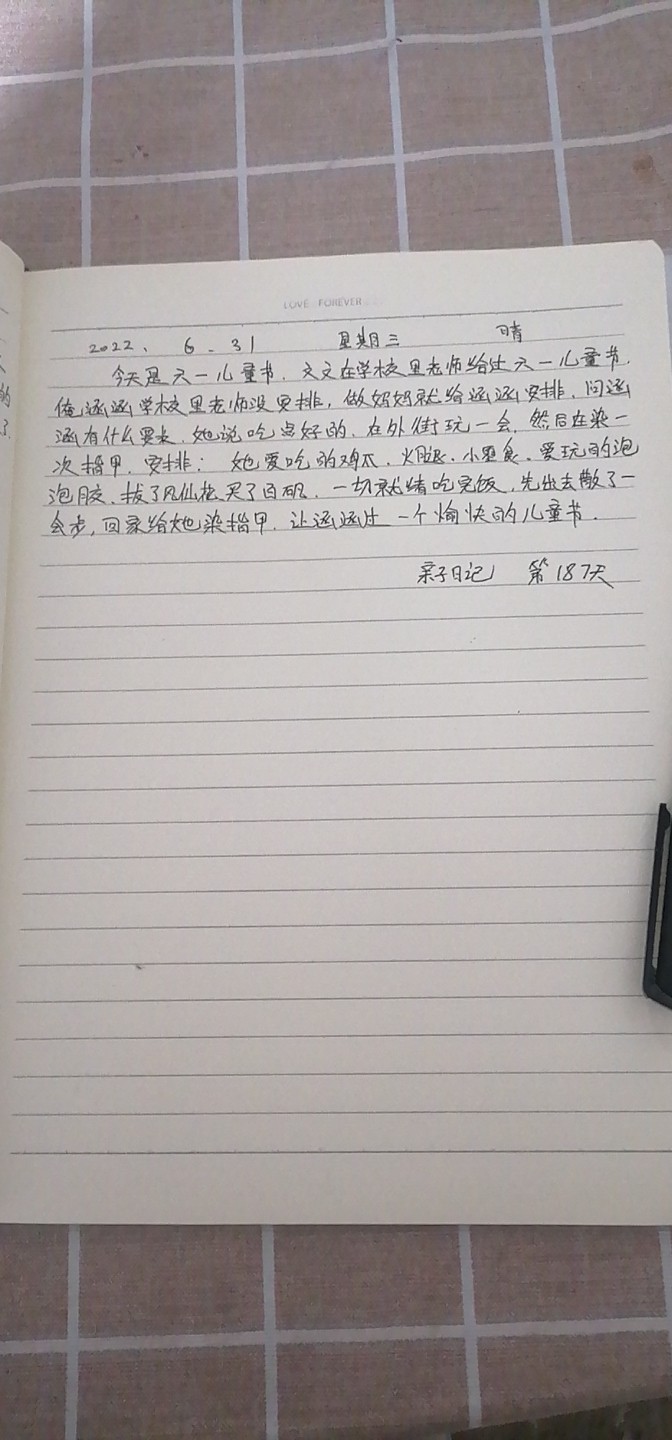 LOVE FOREVER
2022. 6.31 星期三 晴
今天是六一儿童节.文文在学校里老师给过六一儿童节,
俺涵涵学校里老师没安排,做妈妈就给涵涵安排.问涵
涵有什么要求.她说吃点好的.在外街玩一会.然后在染一
次指甲.安排:她爱吃的鸡爪.火腿.小零食.爱玩的泡
泡胶.拔了凤仙花买了白矾.一切就绪吃完饭.先出去散了一
会步,回家给她染指甲.让涵涵过一个愉快的儿童节.
亲子日记 第187天
的
了